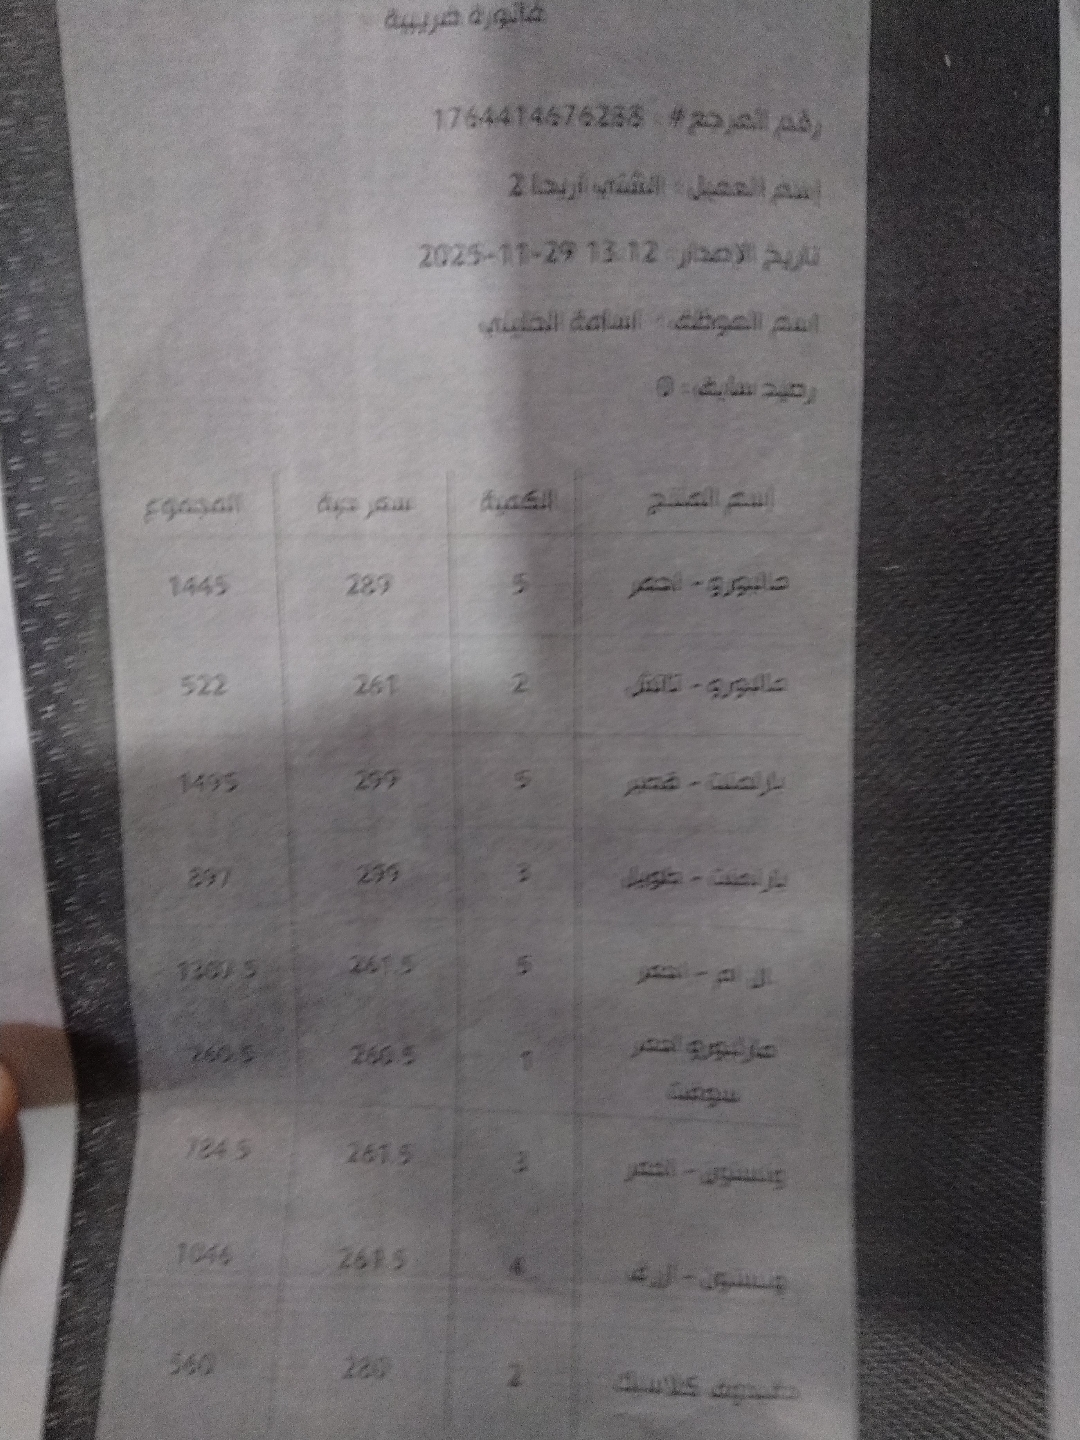 فاتورة ضريبية
رقم المرجع# : 1764414676238
اسم العميل : الشني اريحا 2
تاريخ الإصدار : 2025-11-29 13:12
اسم الموظف : اسامة الخليلي
رصيد سابق : 0
اسم المنتج الكمية سعر حبة المجموع
مالبورو - احمر 5 289 1445
مالبورو - 2 261 522
بارلمنت - قصير 5 299 1495
بارلمنت - طويل 3 299 897
ال ام - احمر 5 261.5 1307.5
مارلبورو احمر 1 260.5 260.5
سوفت
ونستون - احمر 3 261.5 784.5
ونستون - ازرق 4 261.5 1046
كلاسك 2 280 560